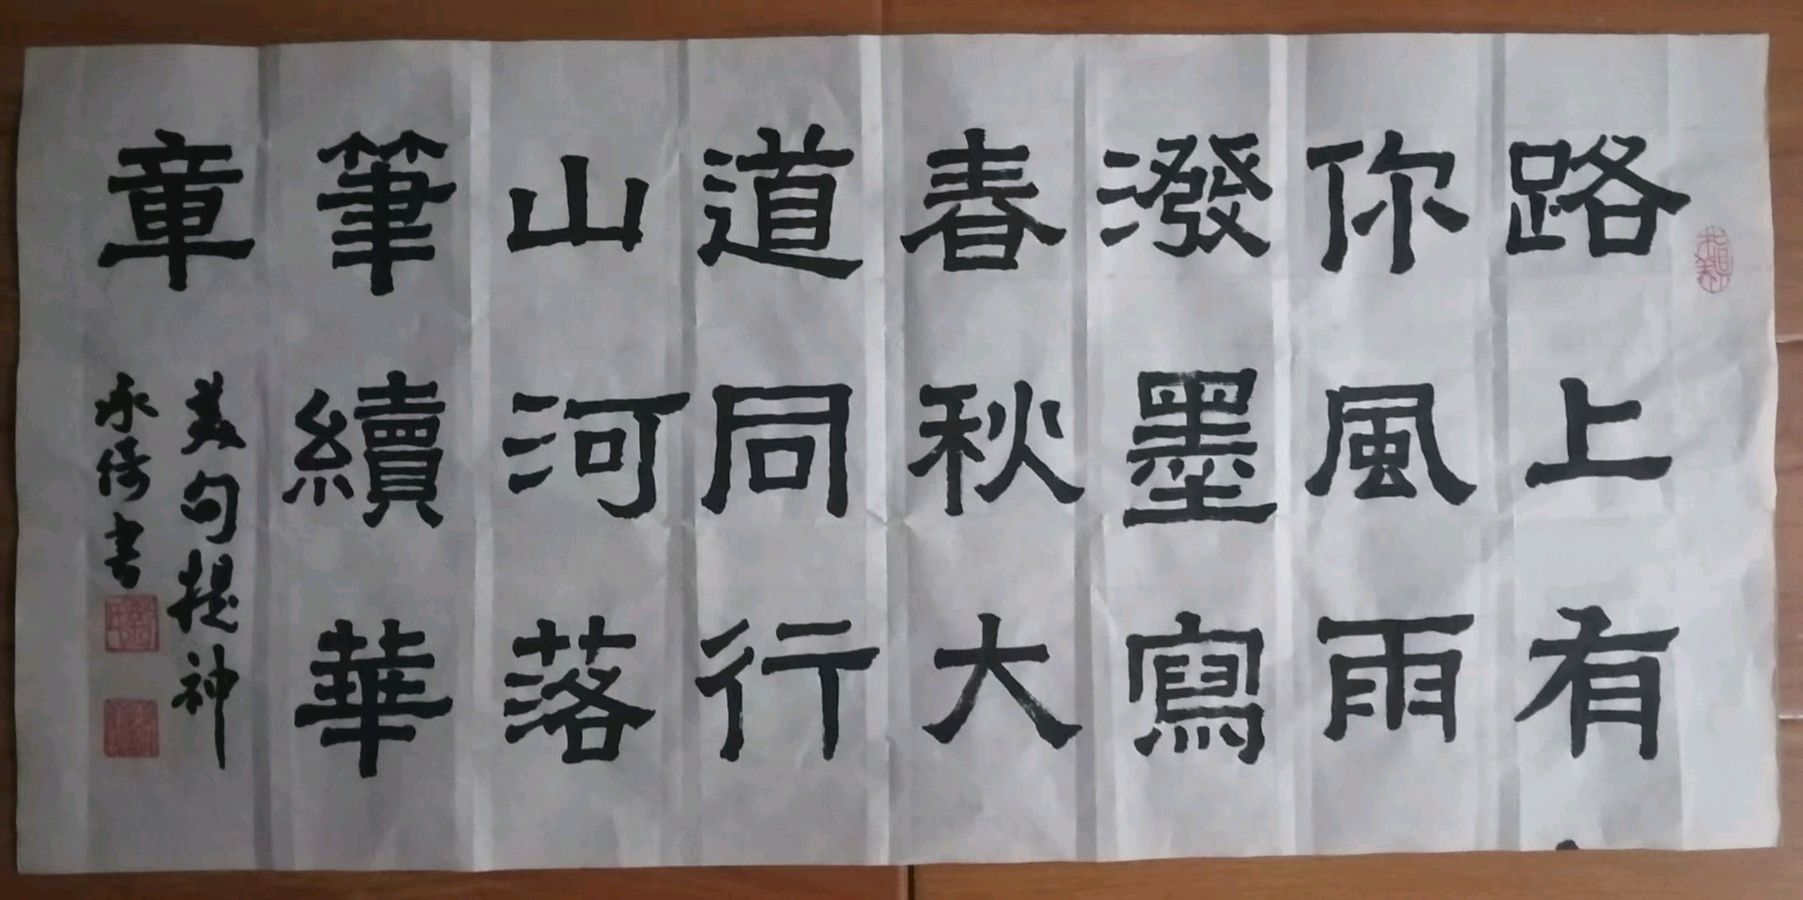 路上有
你風雨
潑墨寫
春秋大
道同行
山河落
筆續華
章
美句提神
永倚書